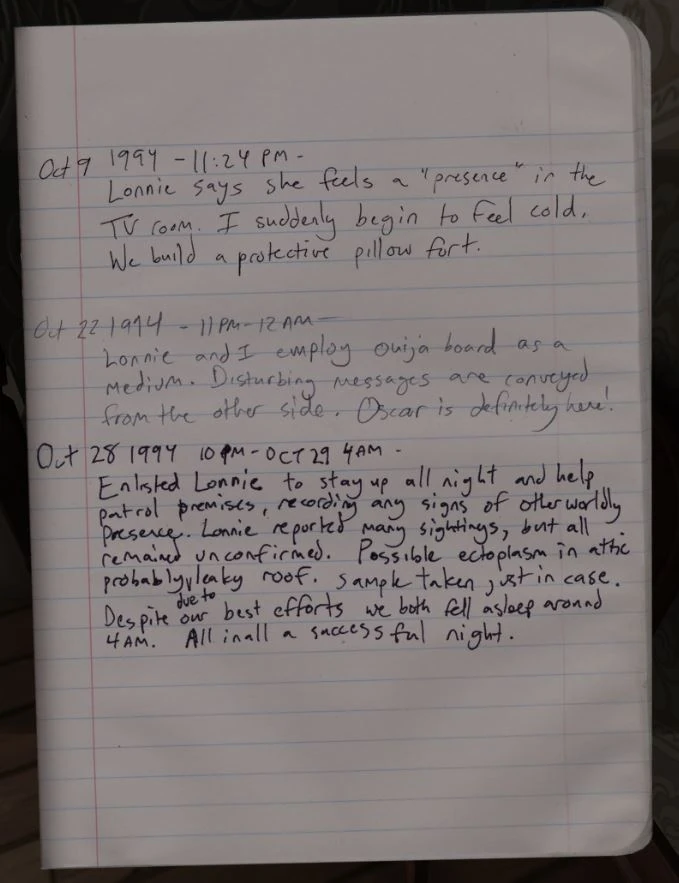 Oct 9 1994 - 11:24 PM -
Lonnie says she feels a "presence" in the
TV room. I suddenly begin to feel cold.
We build a protective pillow fort.
Oct 22 1994 - 11 PM - 12 AM -
Lonnie and I employ ouija board as a
medium. Disturbing messages are conveyed
from the other side. Oscar is definitely here!
Oct 28 1994 10 PM - OCT 29 4AM -
Enlisted Lonnie to stay up all night and help
patrol premises, recording any signs of otherworldly
presence. Lonnie reported many sightings, but all
remained unconfirmed. Possible ectoplasm in attic
probably leaky roof. Sample taken just in case.
due to
Despite our best efforts we both fell asleep around
4AM. All in all a successful night.